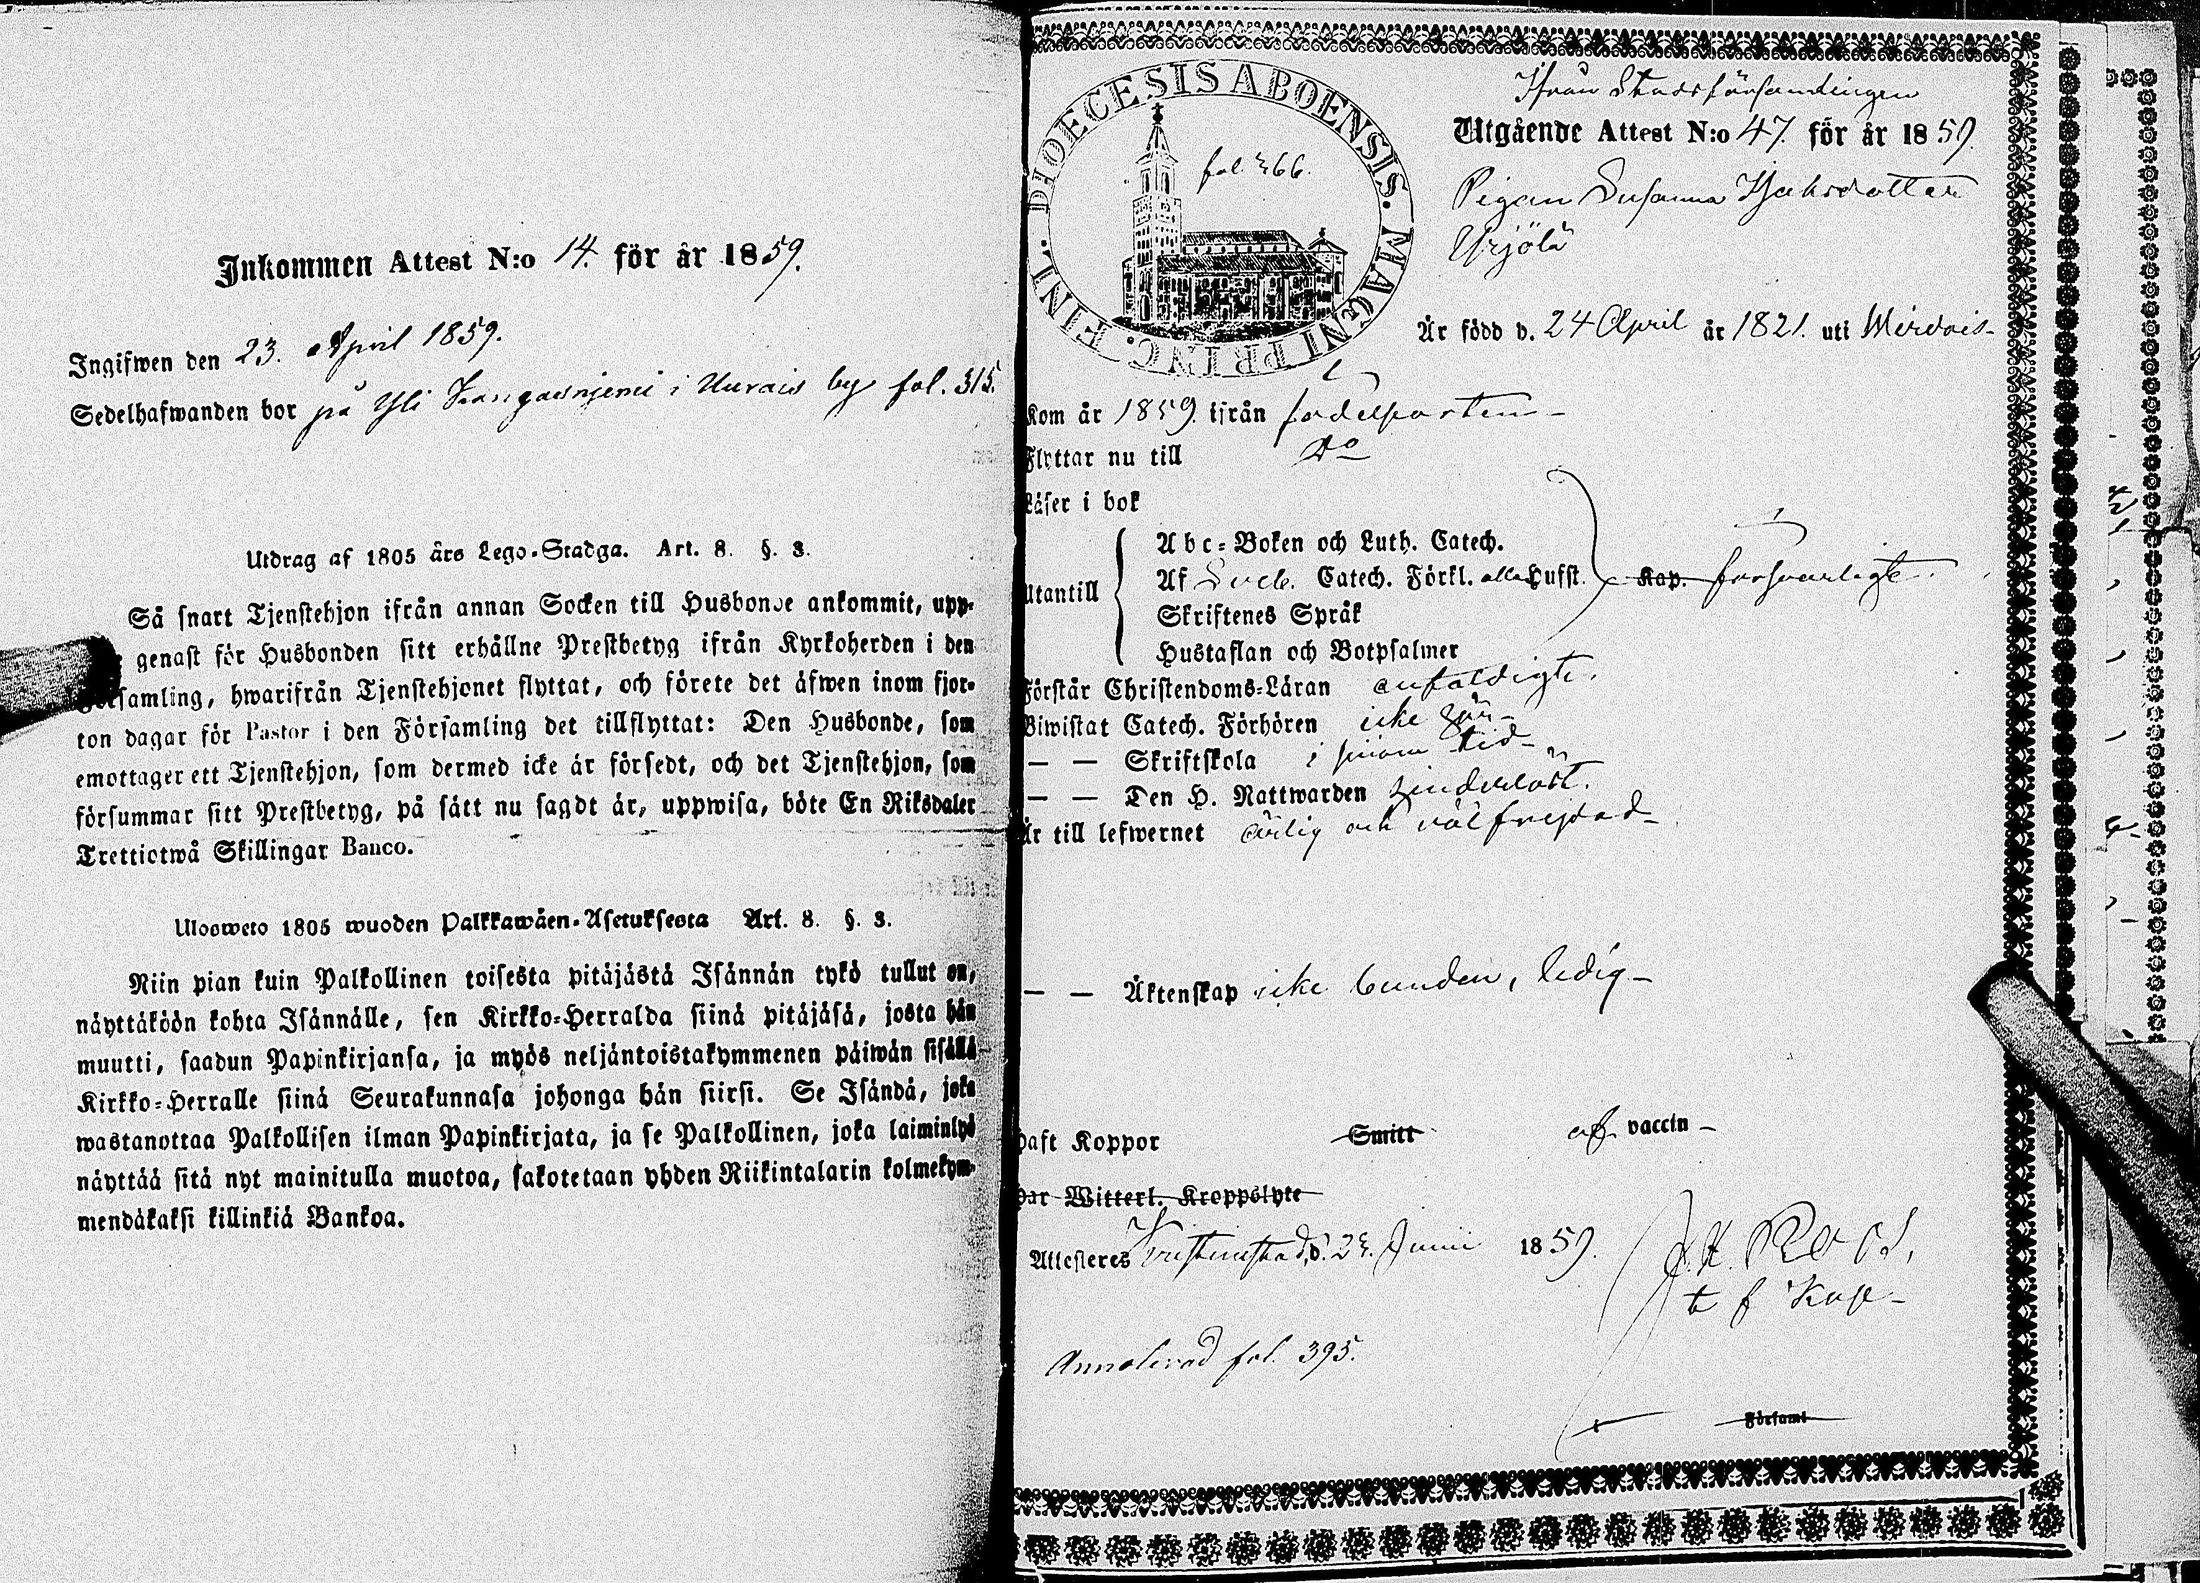 Inkommen Attest N:o 14. för år 1859.
Ingifwen den 23. April 1859.
Sedelhafwanden bor på Yli Kangasnjemi i Uurais by fol. 315.
Utdrag af 1805 års Lego-Stadga. Art. 8. §. 3.
Så snart Tjenstehjon ifrån annan Socken till Husbonde ankommit, upp-
genast för Husbonden sitt erhållne Prestbetyg ifrån Kyrkoherden i den
Församling, hwarifrån Tjenstehjonet flyttat, och förete det äfwen inom fjor-
ton dagar för Pastor i den Församling det tillflyttat: Den Husbonde, som
emottager ett Tjenstehjon, som dermed icke är försedt, och det Tjenstehjon, som
försummar sitt Prestbetyg, på sätt nu sagdt är, uppwisa, böte En Riksdaler
Trettiotwå Skillingar Banco.
Uloosweto 1805 wuoden Palkkawäen-Asetuksesta Art. 8. §. 3.
Niin pian kuin Palkollinen toisesta pitäjästä Isännän tykö tullut on,
näyttäköön kohta Isännälle, sen Kirkko-Herralda siinä pitäjäsä, josta hän
muutti, saadun Papinkirjansa, ja myös neljäntoistakymmenen päiwän sisällä
Kirkko-Herralle siinä Seurakunnasa johonga hän siirsi. Se Isändä, joka
wastanottaa Palkollisen ilman Papinkirjata, ja se Palkollinen, joka laiminlyö
näyttää sitä nyt mainitulla muotoa, sakotetaan yhden Riikintalarin kolmekym-
mendäkaksi killinkiä Bankoa.
DIOECESIS ABOENSIS. MAGNI PRINC. FINL.
fol. 366.
Ifrån Stadsförsamlingen
Utgående Attest N:o 47. för år 1859.
Pigan Susanna Isaksdotter
Yrjölä
Är född d. 24 April år 1821. uti Wirdois-
Kom år 1859. ifrån födelseorten-
Flyttar nu till Do
Läser i bok
Abc-Boken och Luth. Catech.
Utantill Af Sveb. Catech. Förkl. alla Hufst. Kap. försvarligt.
Skriftenes Språk
Hustaflan och Botpsalmer
Förstår Christendoms-Läran enfaldigt.
Biwistat Catech. Förhören icke här-
— — Skriftskola i sinom tid-
— — Den H. Nattwarden hinderlöst.
Är till lefwernet ärlig och välfrejdad-
— — Äktenskap icke bunden, ledig-
Haft Koppor Smitt af vaccin-
Har Witterl. Kroppslyte
Attesteres Kristinestad, d. 23. Junii 1859. J. H. Roos,
t f Kap-
Annoterad fol. 395.
Församl.